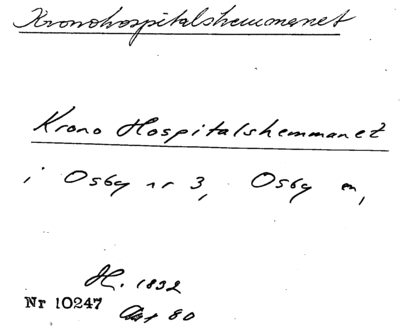 Kronohospitalshemmanet
Krono Hospitalshemmanet
i Osby nr 3, Osby sn,
H. 1832
Nr 10247
Akt 80